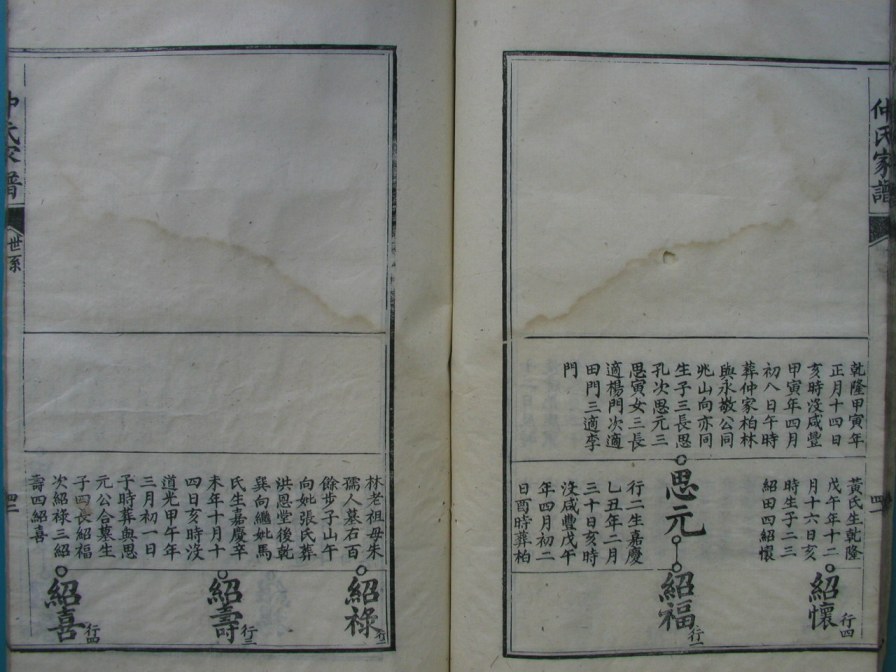 仲氏家譜
乾隆甲寅年
正月十四日
亥時沒咸豐
甲寅年四月
初八日午時
葬仲家柏林
與永敬公同
兆山向亦同
生子三長思
孔次思元三
思寅女三長
適楊門次適
田門三適李
門
黃氏生乾隆
戊午年十二
月十六日亥
時生子二三
紹田四紹懷
紹懷
行四
思元
行二生嘉慶
乙丑年二月
三十日亥時
沒咸豐戊午
年四月初二
日酉時葬柏
紹福
行一
林老祖母朱
孺人墓石百
餘步子山午
向妣張氏葬
洪恩堂後乾
巽向繼妣馬
氏生嘉慶辛
未年十月十
四日亥時沒
道光甲午年
三月初一日
子時葬與思
元公合墓生
子四長紹福
次紹祿三紹
壽四紹喜
紹祿
行二
紹壽
行三
紹喜
行四
氏家譜
世系